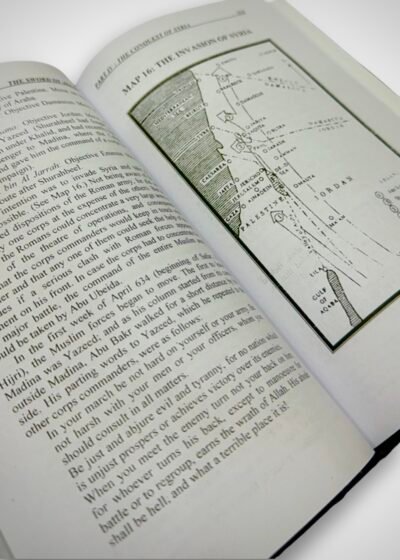 THE SWORD OF
Palestine. Move
of Araba.
Objective Damascus.
Objective Jordan. Move
Yazeed. (Shurahbeel
under Khalid, and had recently
in Madina, where
gave him the command of a
bin Al Jarrah. Objective Emessa.
route after Shurahbeel)
intention was to invade Syria and
possible. (See Map 16.) Not being
dispositions of the Roman army, he
any one corps at the expense of the others,
the Romans could concentrate a very large
the theatre of operations, and
that the corps commanders would keep in touch
and that any one of them could ask for help
if a serious clash with the Roman
on his front. In case the corps had to concentrate
major battle, the command of the entire Muslim
be taken by Abu Ubeida.
In the first week of April 634 (beginning of Safar
Hijri), the Muslim forces began to move. The first to
Madina was Yazeed, and as his column started from its camp
outside Madina, Abu Bakr walked for a short distance by
side. His parting words to Yazeed, which he repeated to
other corps commanders, were as follows:
In your march be not hard on yourself or your army. Be
not harsh with your men or your officers, whom you
should consult in all matters.
Be just and abjure evil and tyranny, for no nation which
is unjust prospers or achieves victory over its enemies.
When you meet the enemy turn not your back on him;
for whoever turns his back, except to manoeuvre for
battle or to regroup, earns the wrath of Allah. His abode
shall be hell, and what a terrible place it is!
PART IV : THE CONQUEST OF SYRIA
MAP 16: THE INVASION OF SYRIA
DAMASCUS
TYRE
CAESARIA
JAFFA
JERUSALEM
GAZA
PALESTINE
JORDAN
MAAN
GULF
AQABA